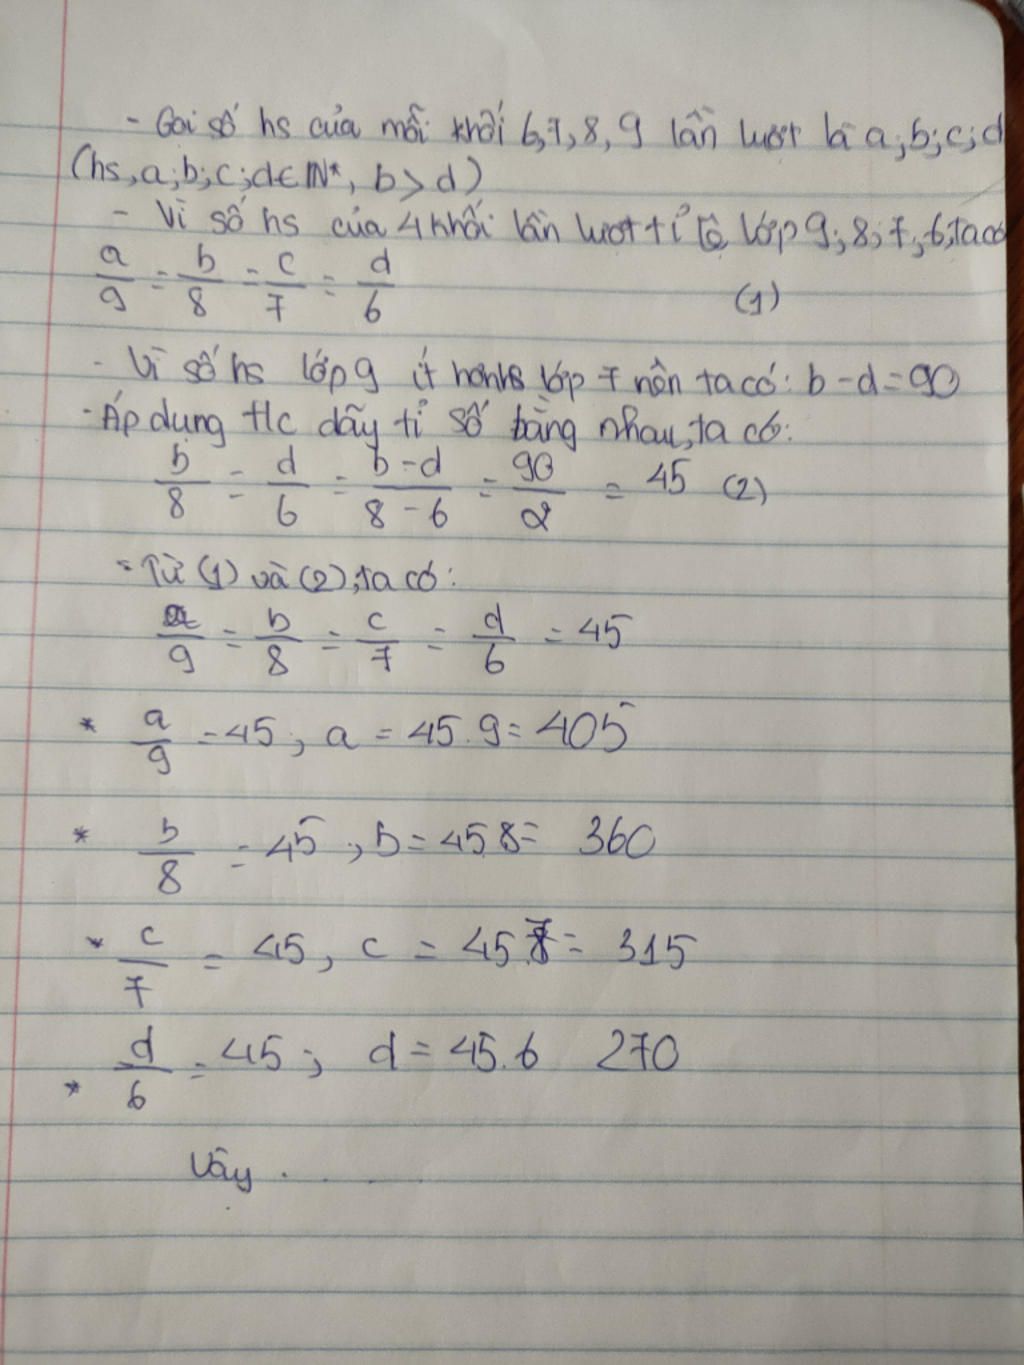 - Gọi số hs của mỗi khối 6,7,8,9 lần lượt là a;b;c;d
(hs,a;b;c;d∈N*, b>d)
- Vì số hs của 4 khối lần lượt tỉ lệ lớp 9;8;7;6,ta có
a/9 = b/8 = c/7 = d/6 (1)
- Vì số hs lớp 9 ít hơn hs lớp 7 nên ta có: b-d=90
- Áp dụng t/c dãy tỉ số bằng nhau,ta có:
b/8 = d/6 = b-d/8-6 = 90/2 = 45 (2)
- Từ (1) và (2),ta có:
a/9 = b/8 = c/7 = d/6 = 45
* a/9 = 45, a = 45.9 = 405
* b/8 = 45, b = 45.8 = 360
* c/7 = 45, c = 45.7 = 315
* d/6 = 45; d = 45.6 270
Vậy .....